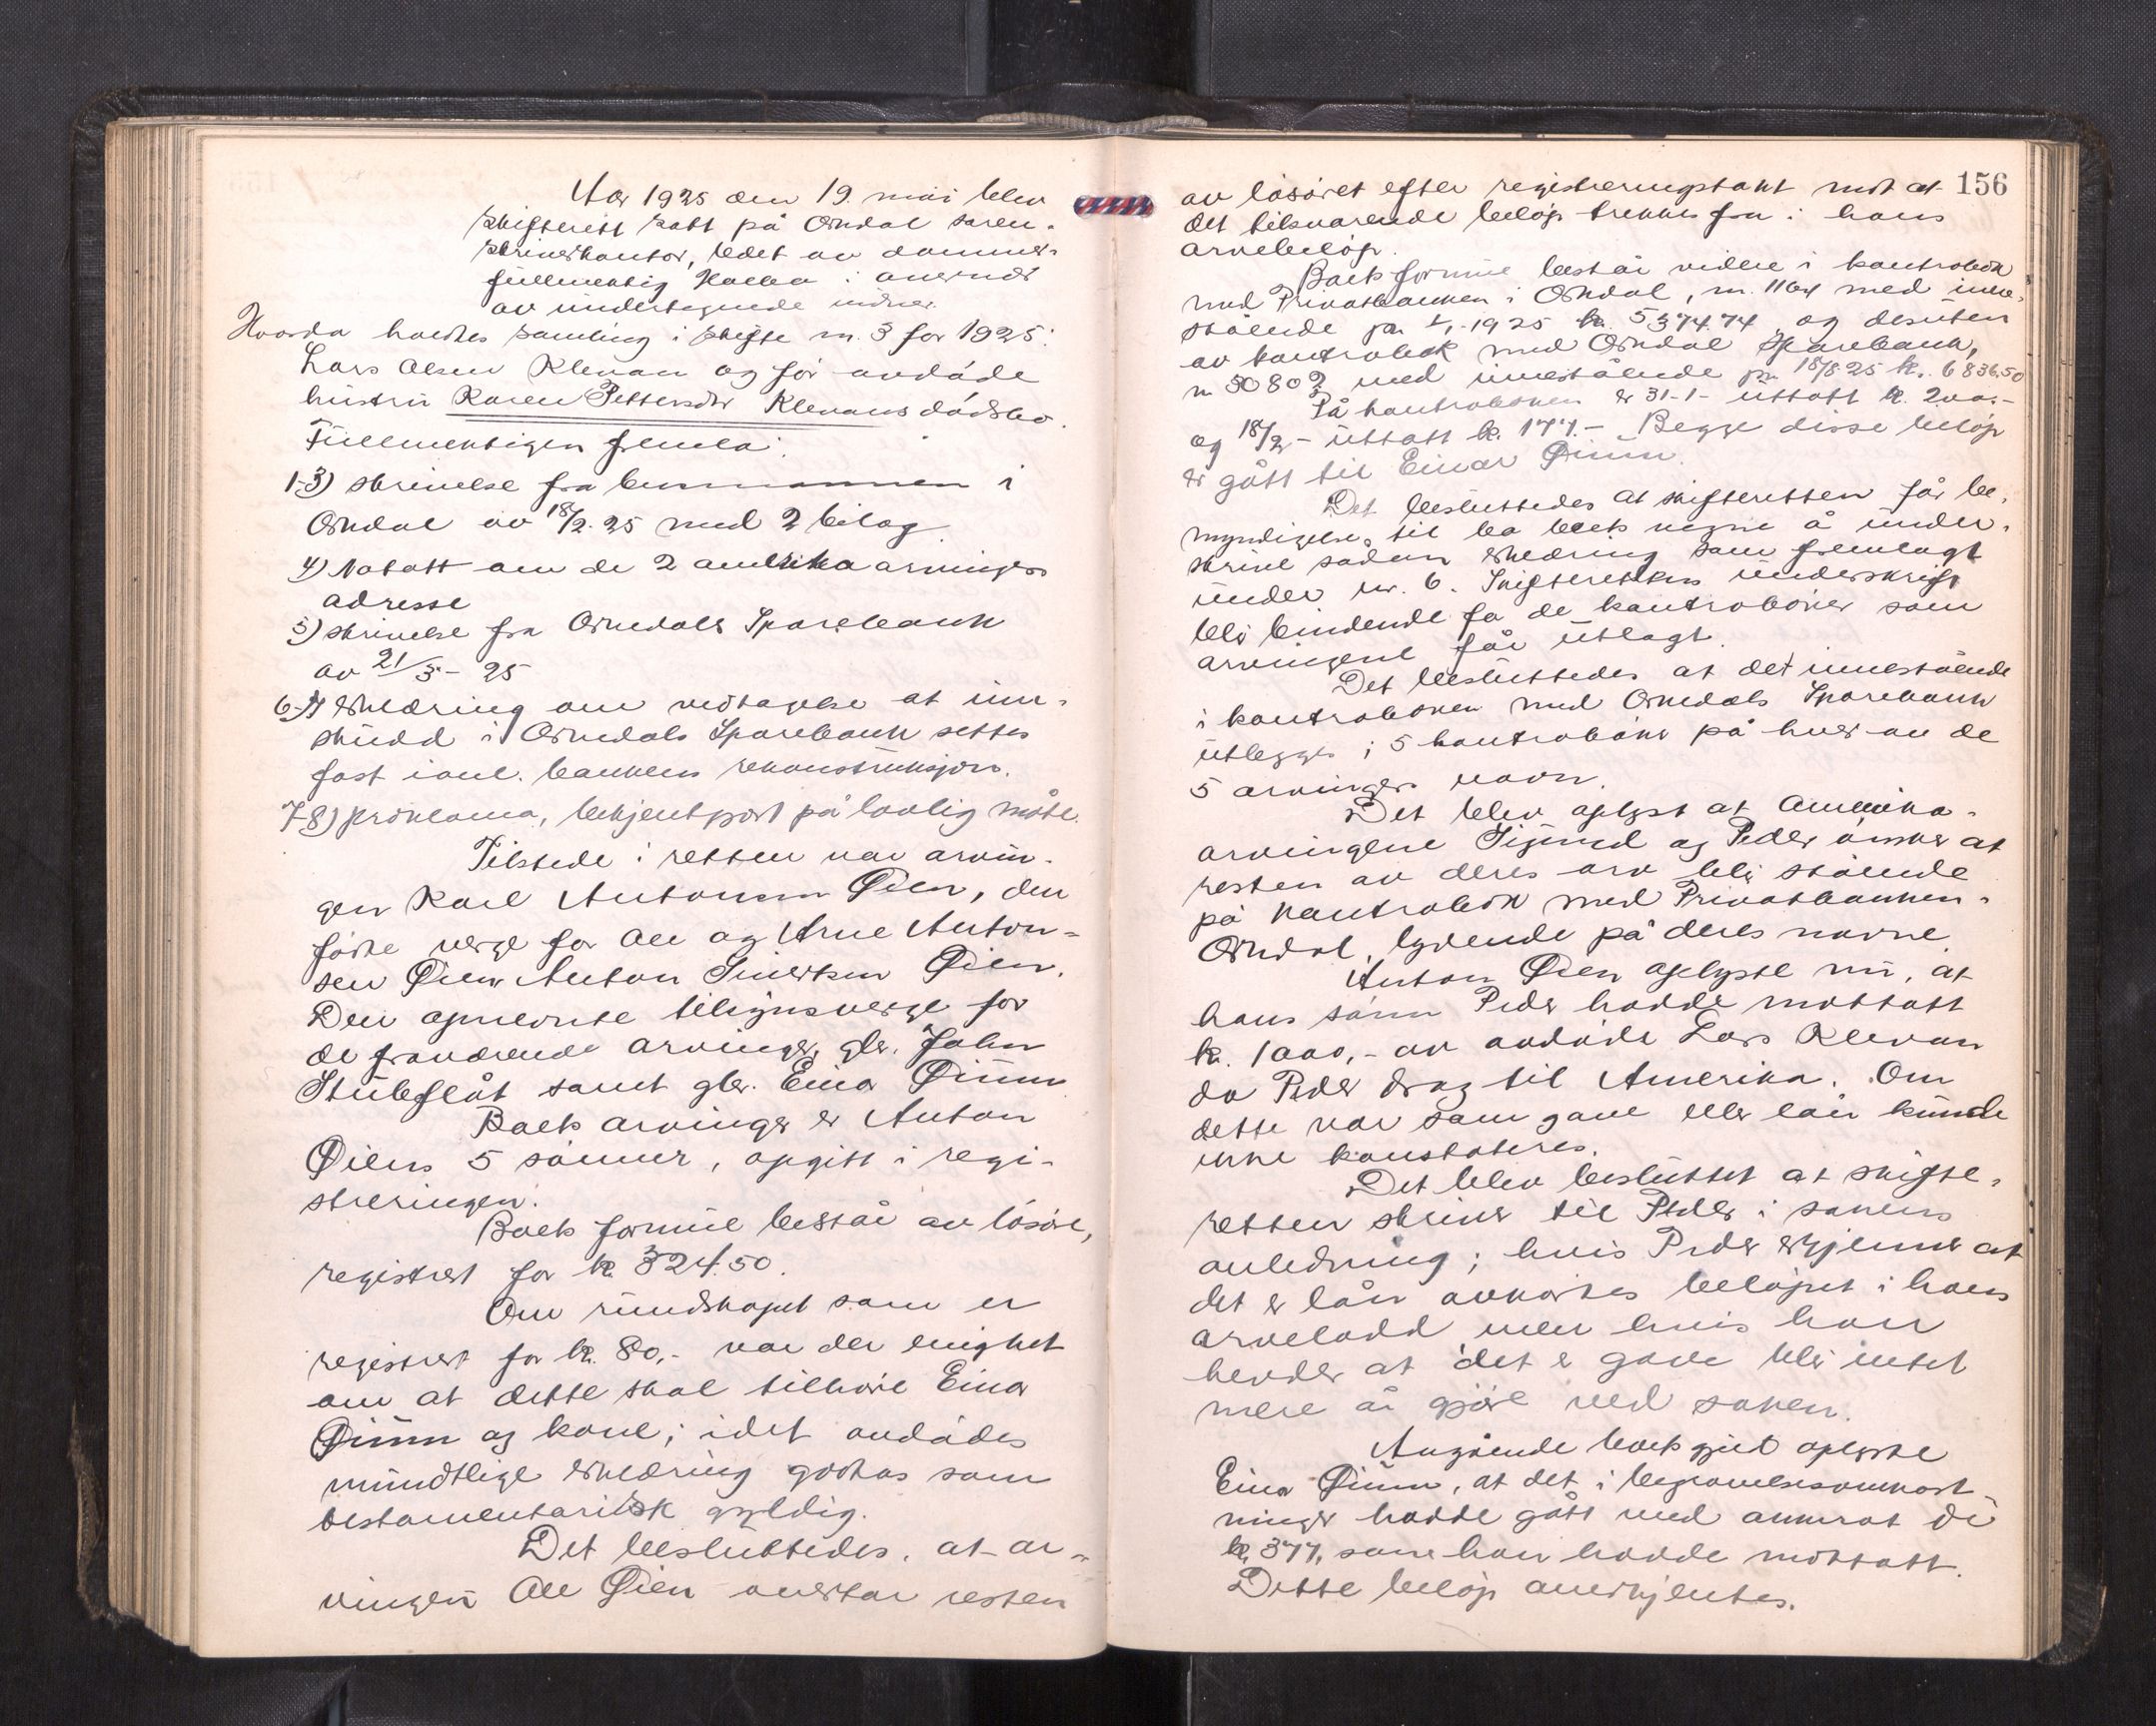 År 1925 den 19. mai blev
skifterett satt på Orkdal soren-
skriverkontor, ledet av dommer-
fullmektig Holba i overvær
av undertegnede vidner.
Hvorda holdtes samling i skifte nr. 3 for 1925:
Lars Olsen Klevan og før avdøde
hustru Karen Pettersdtr Klevans dødsbo.
Fullmektigen fremla:
1-3) skrivelse fra lensmannen i
Orkdal av 18/2. 25 med 2 bilag
4) Notatt om de 2 amerika arvingers
adresse
5) skrivelse fra Orkedals Sparebank
av 21/3 - 25
6-7) erklæring om vedtagelse at inn-
skudd i Orkedals Sparebank settes
fast ianl. bankens rekonstruksjon.
7-8) proklama, bekjentgjort på lovlig måte.
Tilstede i retten var arvin-
gen Karl Antonsen Øien, den
fødte verge for Ole og Arne Anton-
sen Øien Anton Sivertsen Øien.
Den opnevnte tilsynsverge for
de fraværende arvinger, gbr. John
Stubeflåt samt gbr. Einar Øium
Boets arvinger er Anton
Øiens 5 sønner, opgitt i regi-
streringen.
Boets formue består av løsøre,
registrert for kr. 324.50.
Om rundskapet som er
registrert for kr. 80,- var der enighet
om at dette skal tilhøre Einar
Øium og kone; idet avdødes
mundtlige erklæring godtas som
testamentarisk gyldig.
Det besluttedes, at ar-
vingen Ole Øien overtar resten
156
av løsøret efter registreringstakt mot at
det tilsvarende beløp trekkes fra i hans
arvebeløp.
Boets formue består videre i kontrabok
med Privatbanken i Orkdal, nr. 1164 med inne-
stående pr. 1/1-1925 kr. 5374.74 og desuten
av kontrabok med Orkdal Sparebank,
nr 30802 med innestående pr. 18/8 25 kr. 6836.50
På kontraboken er 31-1- uttatt kr. 200.-
og 18/2- uttatt kr. 177.- Begge disse beløp
er gått til Einar Øium.
Det besluttedes at skifteretten får be-
myndigelse til på boets vegne å under-
skrive sådan erklæring som fremlagt
under nr. 6. Skifterettens underskrift
bli bindende for de kontrabøker som
arvingene får utlagt.
Det besluttedes at det innestående
i kontraboken med Orkedals Sparebank
utlegges i 5 kontrabøker på hver av de
5 arvingers navn.
Det blev oplyst at Amerika-
arvingene Sigurd og Peder ønsker at
resten av deres arv blir stående
på kontrabok med Privatbanken-
Orkdal, lydende på deres navne
Anton Øien oplyste nu, at
hans sønn Peder hadde mottatt
kr. 1000,- av avdøde Lars Klevan
da Peder drog til Amerika. Om
dette var som gave eller lån kunde
ikke konstateres.
Det blev besluttet at skifte-
retten skriver til Peder i sakens
anledning; hvis Peder erkjenner at
det er lån avkortes beløpet i hans
arvelodd men hvis han
hevder at det er gave blir intet
mere å gjøre ved saken.
Angående boets gjeld oplyste
Einar Øium, at det i begravelsesomkost-
ninger hadde gått med akkurat de
kr. 377, som han hadde mottatt.
Dette beløp anerkjentes.